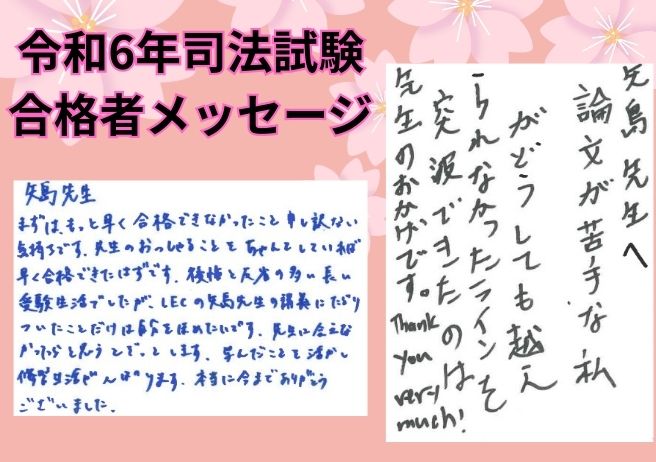 令和6年司法試験
合格者メッセージ
矢島先生
まずは、もっと早く合格できなかったこと申し訳ない
気持ちです。先生のおっしゃることをちゃんとしていれば
早く合格できたはずです。後悔と反省の多い長い
受験生活でしたが、LECの矢島先生の講義にたどり
ついたことだけは自分をほめたいです。先生に会えな
かったらと思うとぞっとします。学んだことを活かし
修習生活がんばります。本当に今までありがとう
ございました。
矢島先生へ
論文が苦手な私
がどうしても越え
られなかったラインを
突破できたのは
先生のおかげです。Thank you very much!